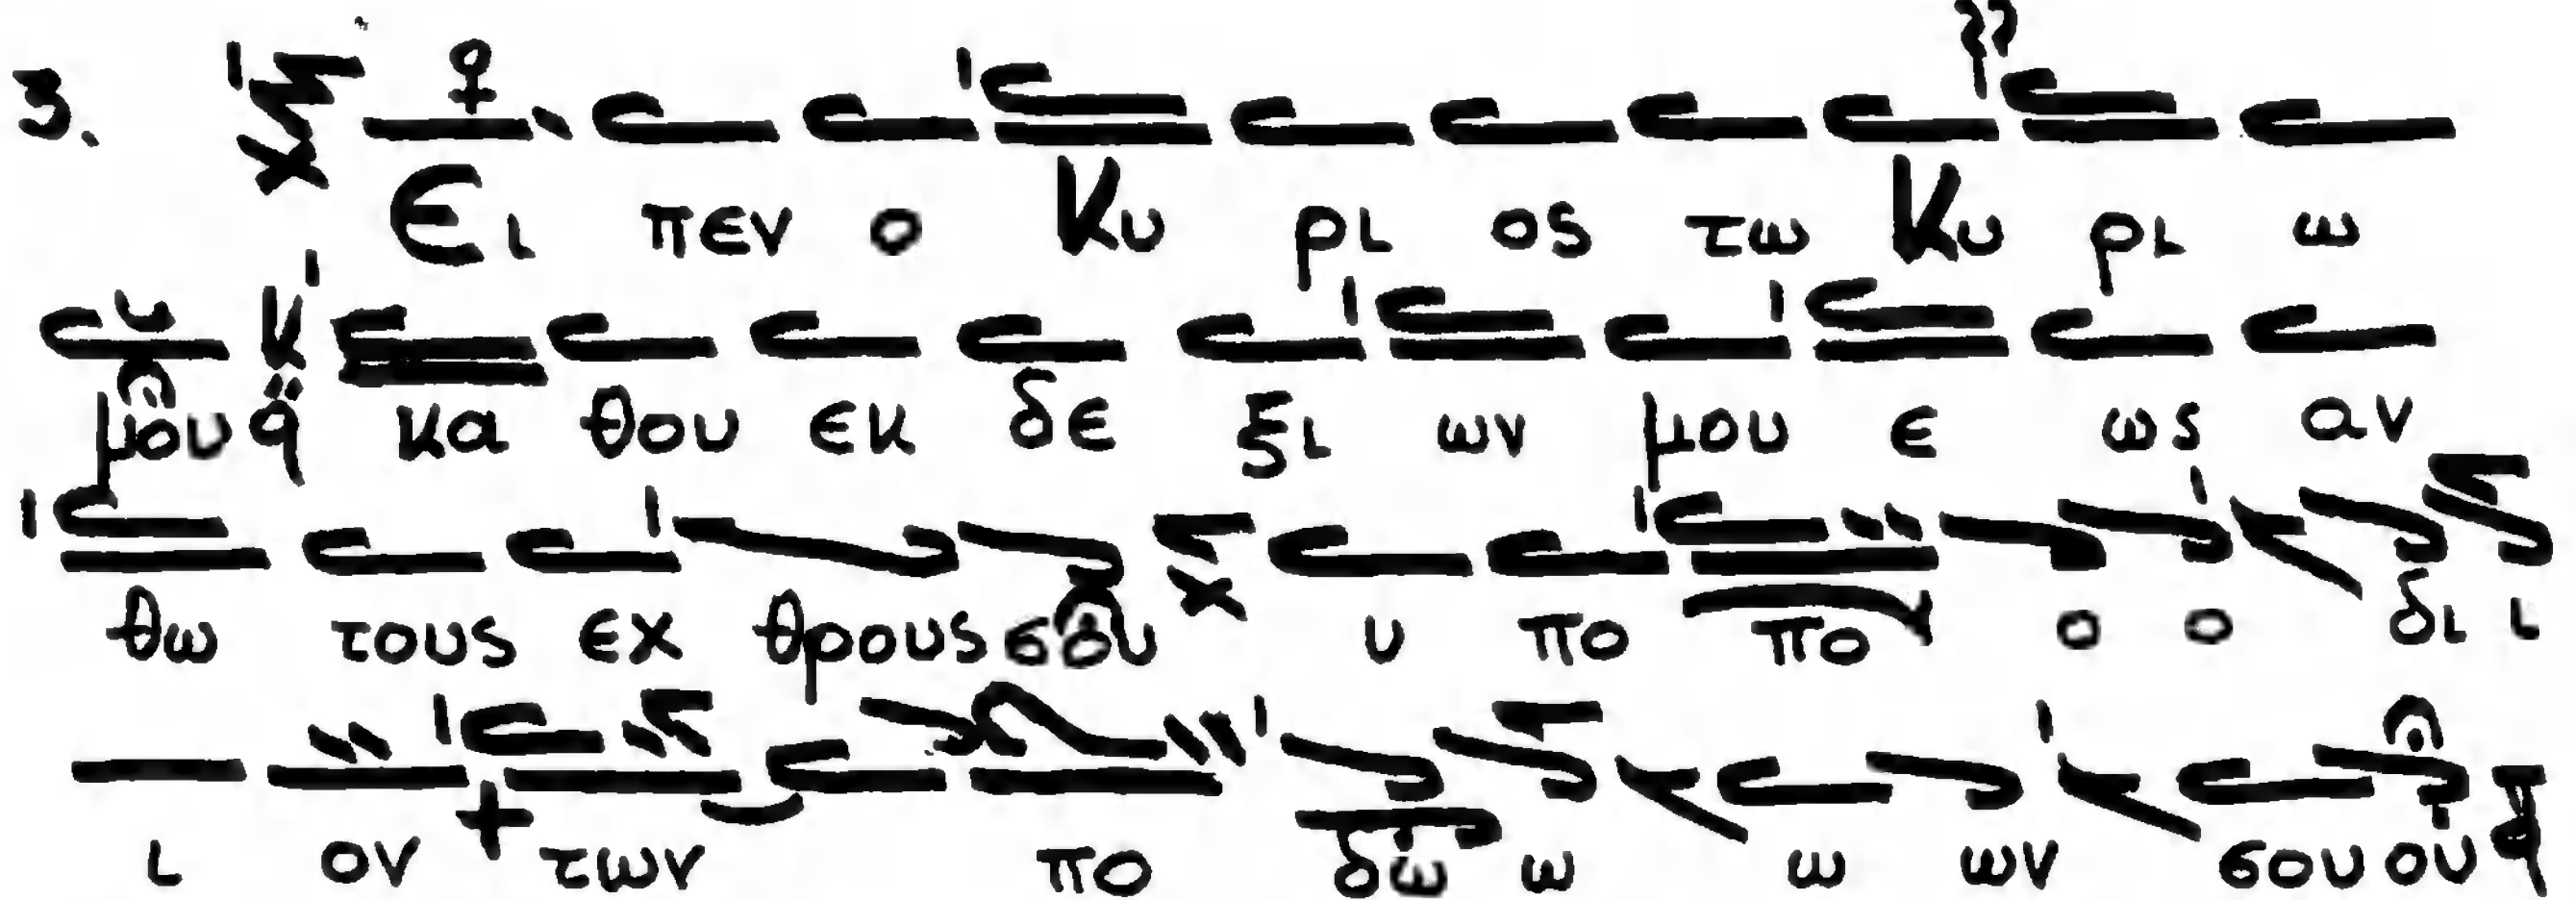 3. Ει πεν ο Κυ ρι ος τω Κυ ρι ω
μου κα θου εκ δε ξι ων μου ε ως αν
θω τους εχ θρους σου υ πο πο ο ο δι ι
ι ον των πο δω ω ω ων σου ου